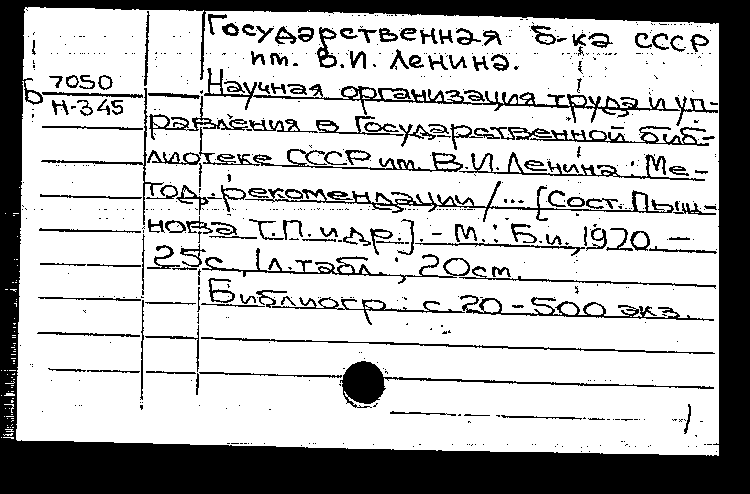 Государственная б-ка СССР
им. В.И. Ленина.
Б 7050
Н-345
Научная организация труда и уп-
равления в Государственной биб-
лиотеке СССР им. В.И. Ленина : Ме-
тод. рекомендации / ... [Сост. Пыш-
нова Т.П. и др.]. - М. : Б.и., 1970. -
25с., 1л. табл. ; 20см.
Библиогр. : с. 20 - 500 экз.
1.